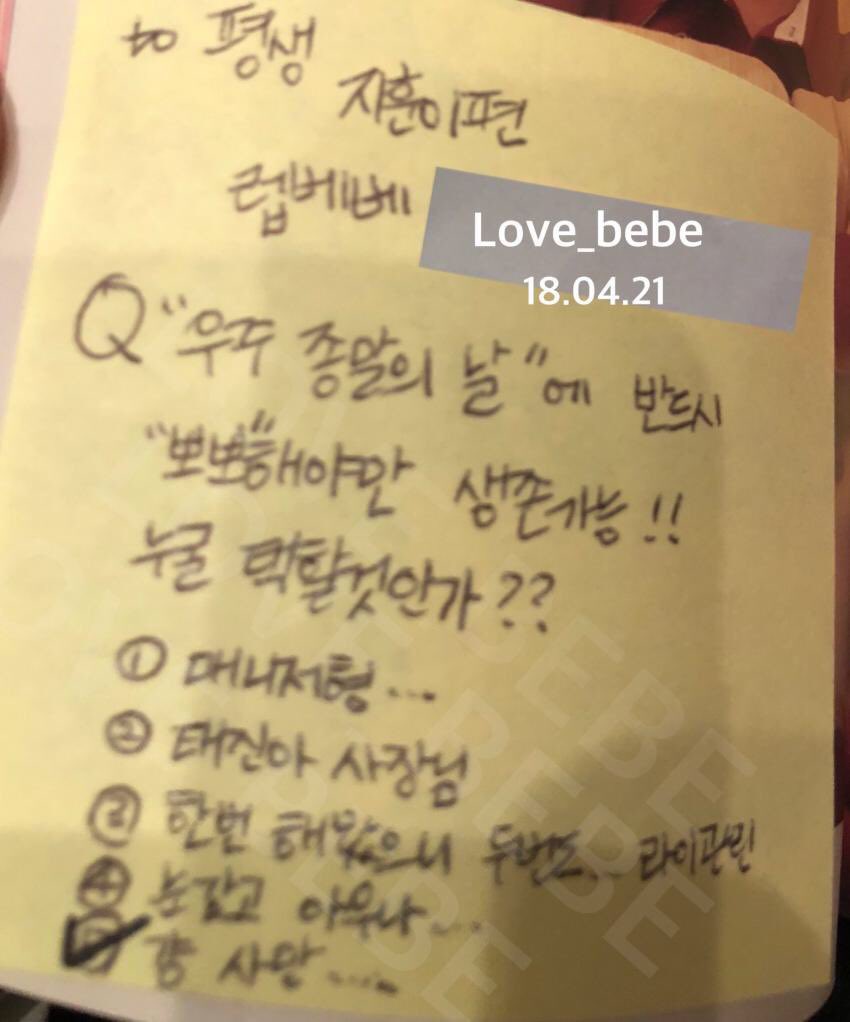 to 평생
지훈이편
럽베베
Love_bebe
18.04.21
Q "우주 종말의 날"에 반드시
"뽀뽀"해야만 생존가능!!
누굴 택할것인가??
① 매니저형...
② 태진아 사장님
③ 한번 해봤으니 두번도... 라이관린
④ 눈감고 아무나....
⑤ 걍 사망.....
LOVE BEBE
LOVE BEBE